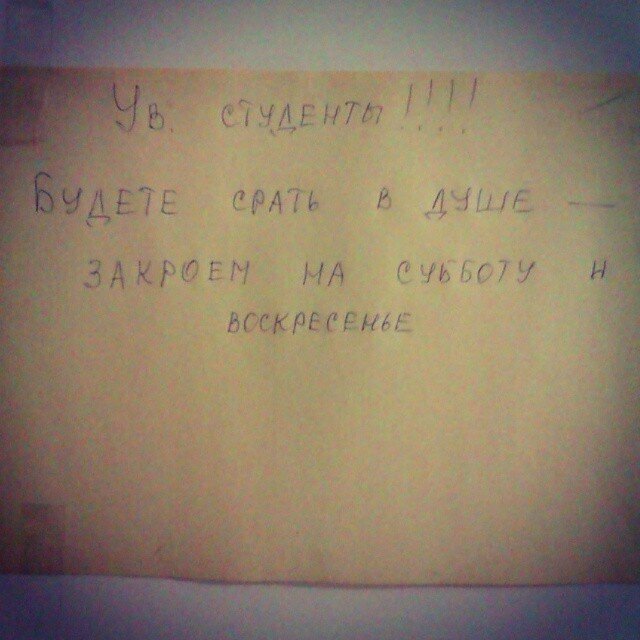 Ув. студенты!!!!
Будете срать в душе —
закроем на субботу и
воскресенье